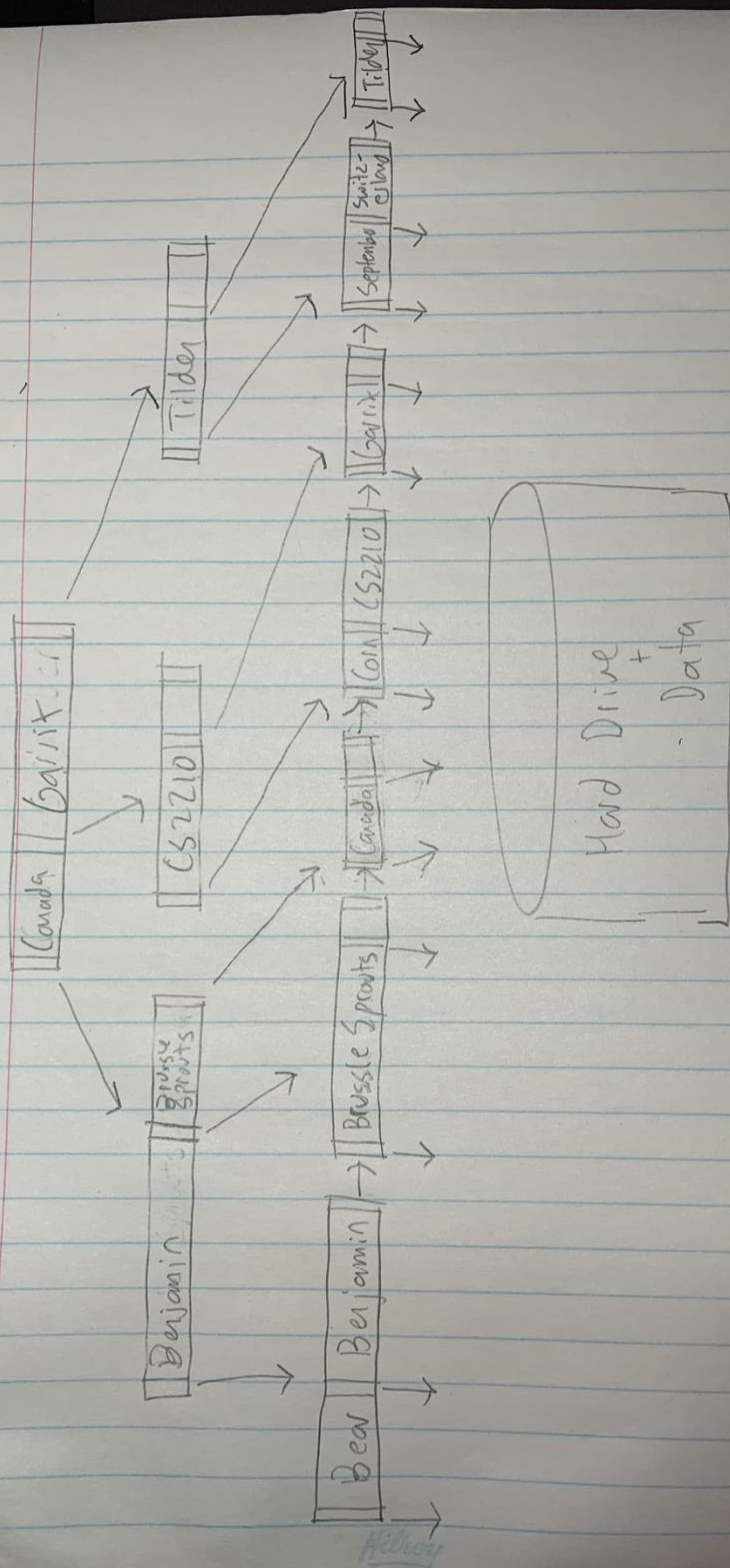 Canada Garrix
Benjamin Brussle Sprouts
CS2210
Tilder
Bear Benjamin
Brussle Sprouts
Canada
Coin CS2210
Garrix
September Switz-
erland
Tilder
Hard Drive
+
Data
Hilroy